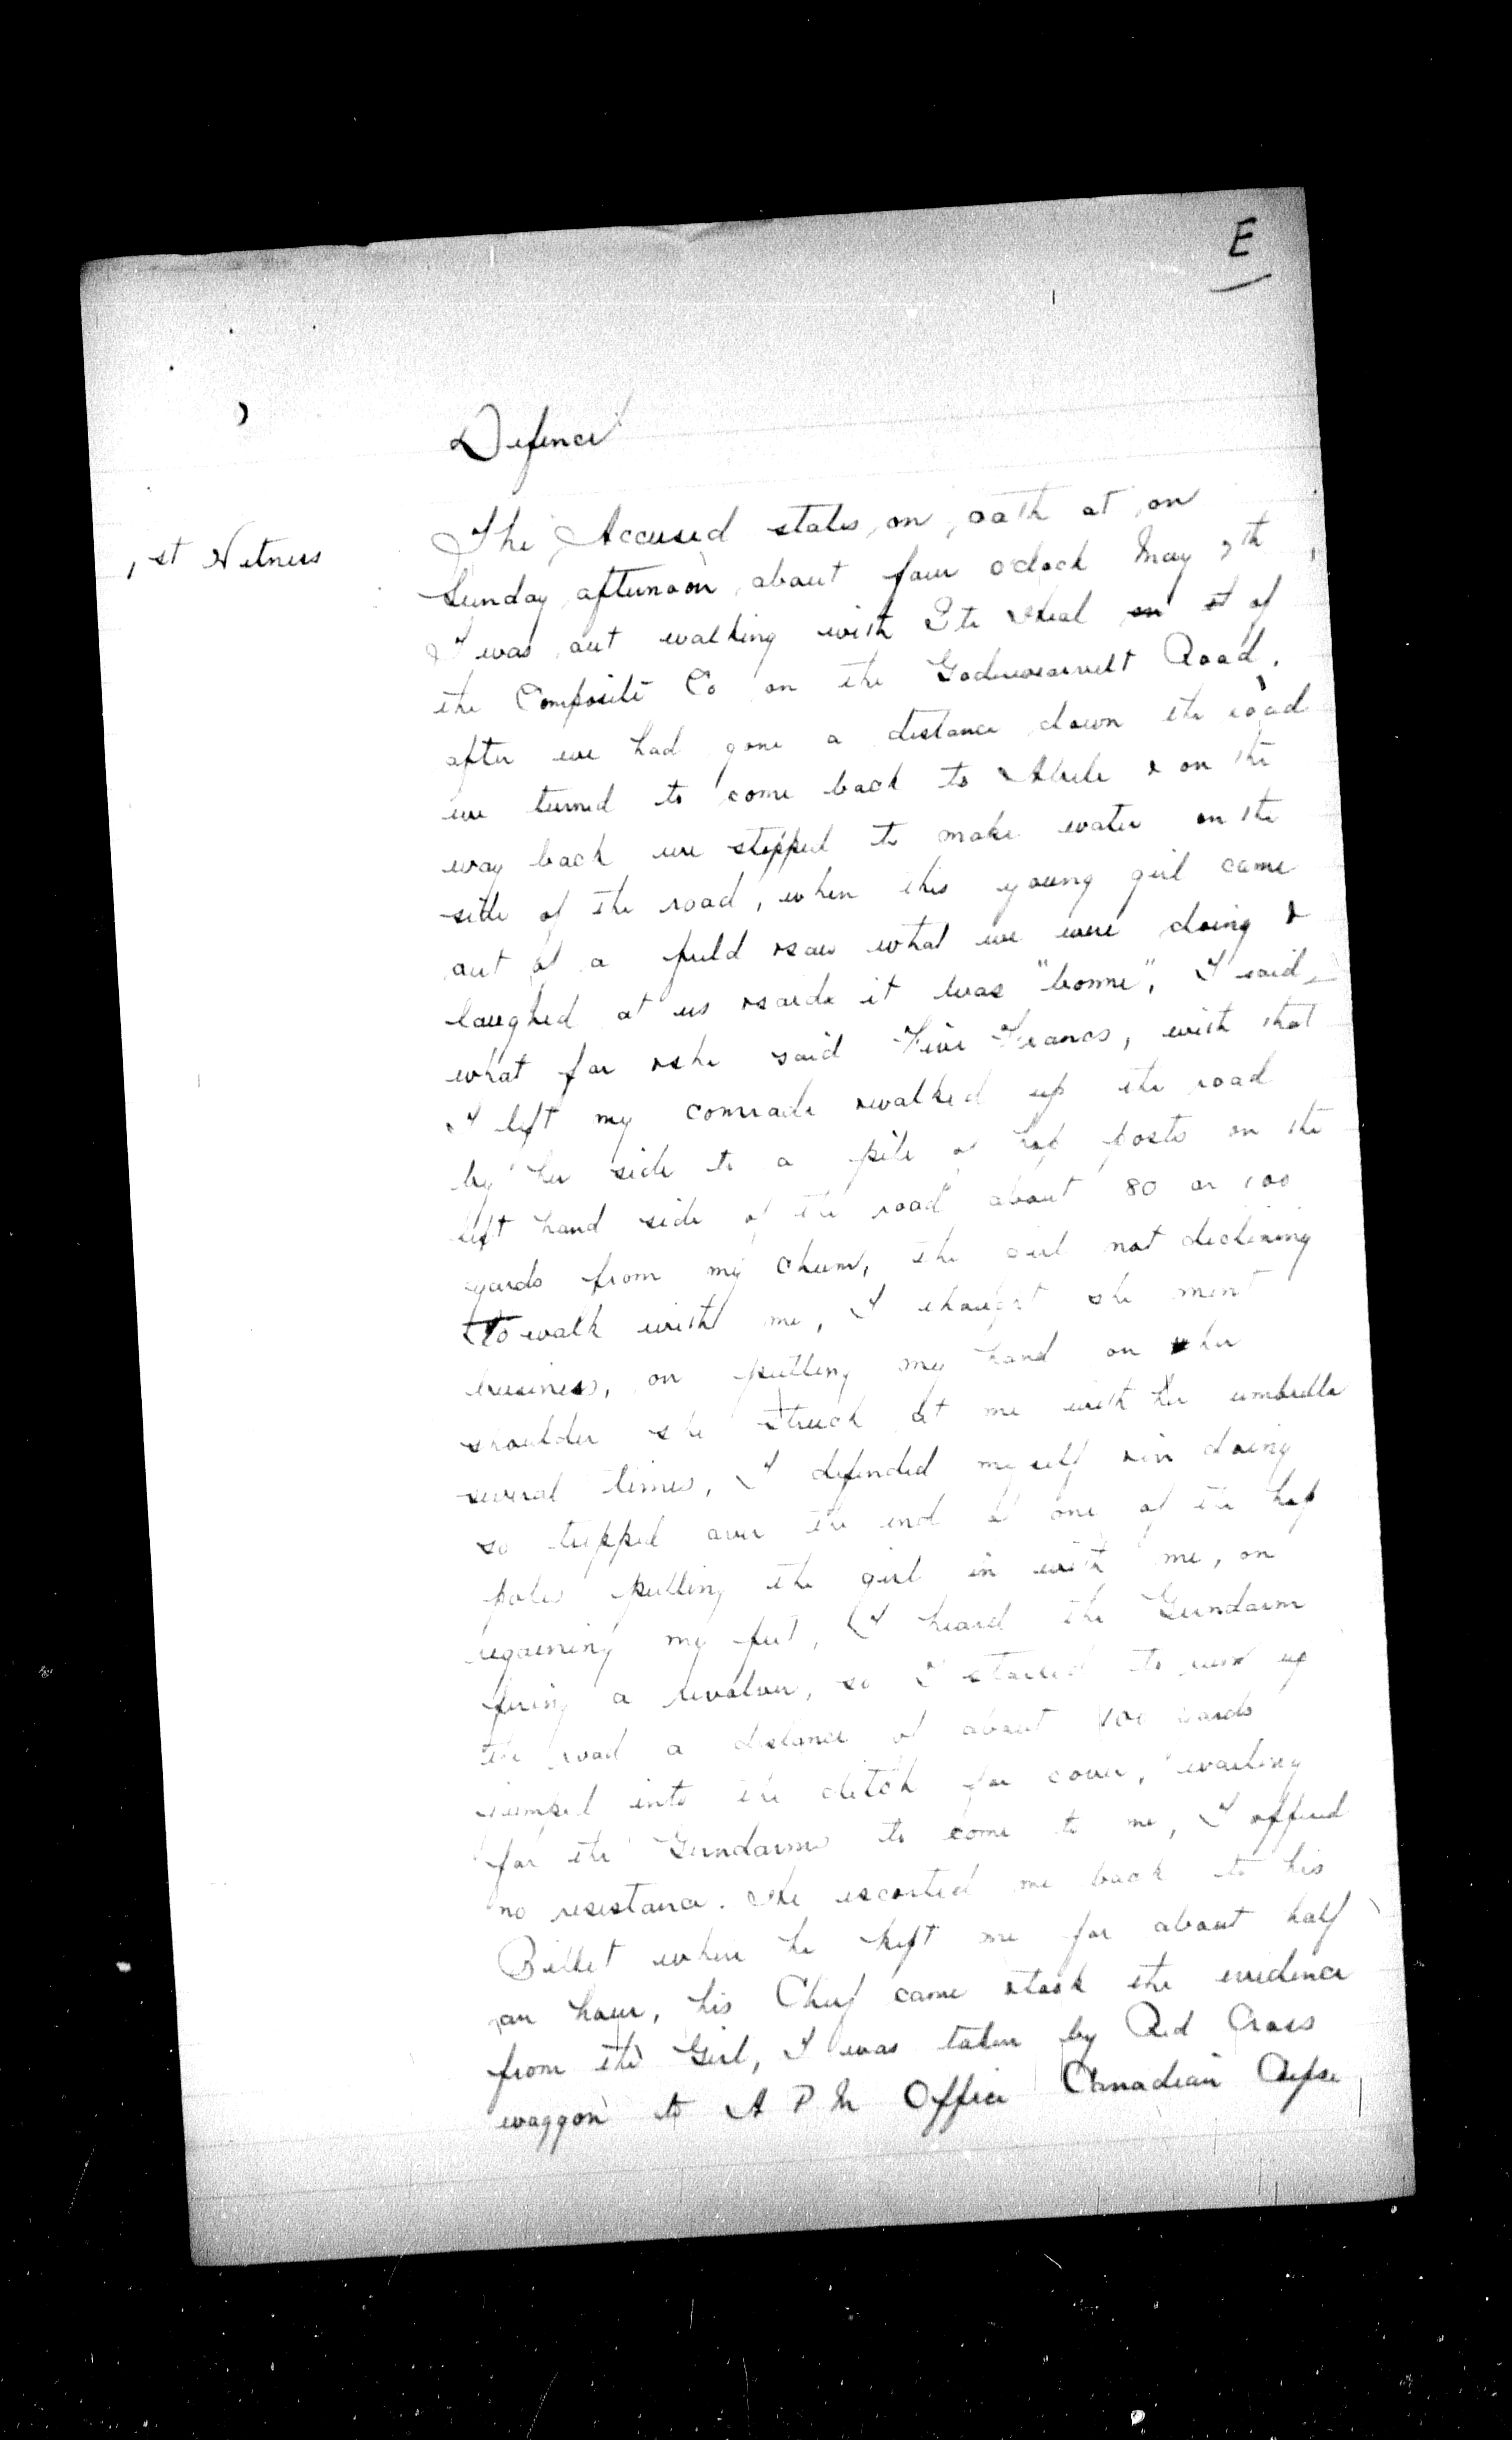 E
Defence
1st Witness
The Accused states on oath at on
Sunday afternoon about four o'clock May 7th
I was out walking with Pte of
the Composite Co on the Godewaersvelt Road.
after we had gone a distance down the road
we turned to come back to Abele & on the
way back we stopped to make water on the
side of the road, when this young girl came
out of a field & saw what we were doing &
laughed at us & said it was "bonne", I said
what for & she said Five Francs, with that
I left my comrade & walked up the road
by her side to a pile of hop posts on the
left hand side of the road about 80 or 100
yards from my chum, the girl not declining
to walk with me, I thought she ment
business, on putting my hand on her
shoulder she struck at me with her umbrella
several times, I defended myself & in doing
so tripped over the end of one of the hop
poles pulling the girl in with me, on
regaining my feet, I heard the Gendarm
firing a revolver, so I started to run up
the road a distance of about 100 yards
jumped into the ditch for cover, waiting
for the Gendarme to come to me, I offered
no resistance. He escorted me back to his
Billet where he kept me for about half
an hour, his Chief came & took the evidence
from the Girl, I was taken by Red Cross
waggon to A P M Office Canadian Corps